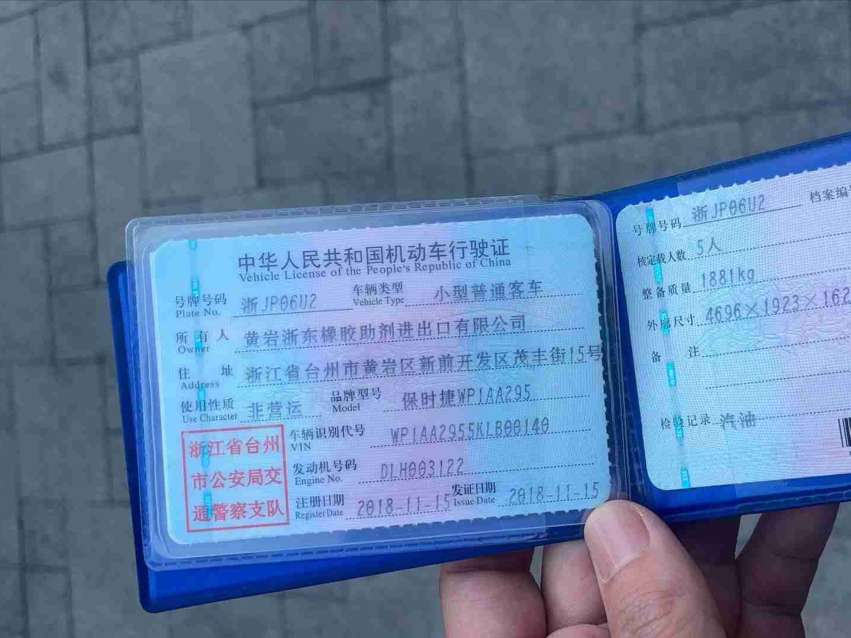 中华人民共和国机动车行驶证
Vehicle License of the People's Republic of China
号牌号码 浙JP06U2 车辆类型 小型普通客车
Plate No. Vehicle Type
所有人 黄岩浙东橡胶助剂进出口有限公司
Owner
住址 浙江省台州市黄岩区新前开发区茂丰街15号
Address
使用性质 非营运 品牌型号 保时捷WP1AA295
Use Character Model
浙江省台州
市公安局交
通警察支队
车辆识别代号 WP1AA2955KLB00140
VIN
发动机号码 DLH003122
Engine No.
注册日期 2018-11-15 发证日期 2018-11-15
Register Date Issue Date
号牌号码 浙JP06U2 档案编
核定载人数 5人
整备质量 1881kg
外廓尺寸 4696×1923×162
备注
检验记录 汽油